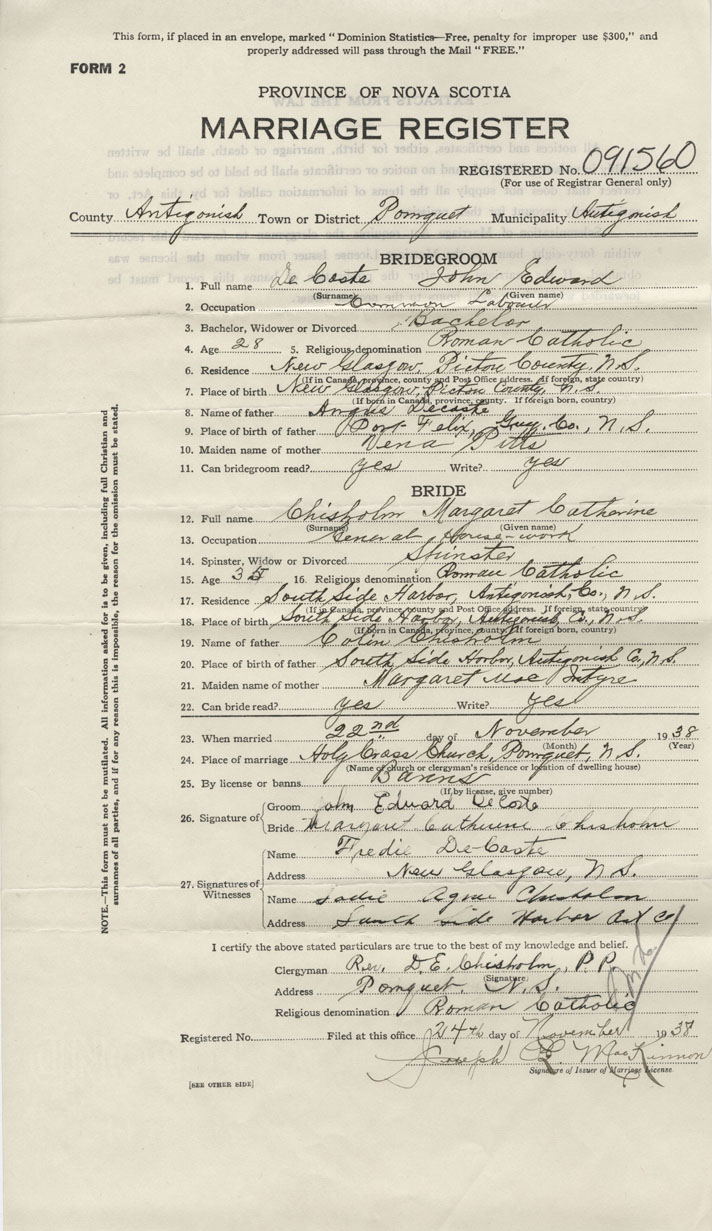 This form, if placed in an envelope, marked "Dominion Statistics—Free, penalty for improper use $300," and
properly addressed will pass through the Mail "FREE."
FORM 2
PROVINCE OF NOVA SCOTIA
MARRIAGE REGISTER
REGISTERED No. 091560
(For use of Registrar General only)
County Antigonish Town or District Pomquet Municipality Antigonish
BRIDEGROOM
1. Full name De Coste John Edward
(Surname) (Given name)
2. Occupation Common Labourer
3. Bachelor, Widower or Divorced Bachelor
4. Age 28 5. Religious denomination Roman Catholic
6. Residence New Glasgow, Pictou County, N.S.
(If in Canada, province, county and Post Office address. If foreign, state country)
7. Place of birth New Glasgow, Pictou County, N.S.
(If born in Canada, province, county. If foreign born, country)
8. Name of father Angus Decoste
9. Place of birth of father Port Felix, Guy. Co., N.S.
10. Maiden name of mother Vena Pitts
11. Can bridegroom read? yes Write? yes
BRIDE
12. Full name Chisholm Margaret Catherine
(Surname) (Given name)
13. Occupation General House-work
14. Spinster, Widow or Divorced Spinster
15. Age 35 16. Religious denomination Roman Catholic
17. Residence South Side Harbor, Antigonish, Co., N.S.
(If in Canada, province, county and Post Office address. If foreign, state country)
18. Place of birth South Side Harbor, Antigonish, Co., N.S.
(If born in Canada, province, county. If foreign born, country)
19. Name of father Colin Chisholm
20. Place of birth of father South Side Harbor, Antigonish Co, N.S.
21. Maiden name of mother Margaret Mac Intyre
22. Can bride read? yes Write? yes
23. When married 22nd day of November 1938
(Month) (Year)
24. Place of marriage Holy Cross Church, Pomquet, N.S.
(Name of church or clergyman's residence or location of dwelling house)
25. By license or banns Banns
(If by license, give number)
26. Signature of Groom John Edward DeCoste
Bride Margaret Catherine Chisholm
27. Signatures of Witnesses
Name Fredie De Coste
Address New Glasgow, N.S.
Name Sadie Agnes Chisholm
Address South Side Harbor Ant Co
I certify the above stated particulars are true to the best of my knowledge and belief.
Clergyman Rev. D.E. Chisholm, P.P.
(Signature)
Address Pomquet, N.S.
Religious denomination Roman Catholic
Registered No. Filed at this office 24th day of November 1938
Joseph MacKinnon
Signature of Issuer of Marriage License.
[SEE OTHER SIDE]
NOTE.—This form must not be mutilated. All information asked for is to be given, including full Christian and
surnames of all parties, and if for any reason this is impossible, the reason for the omission must be stated.